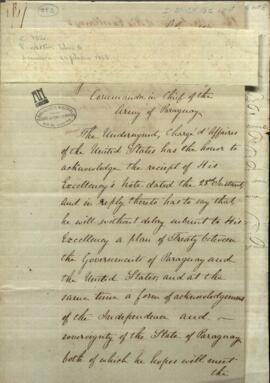 Commander in Chief of the
Army of Paraguay
The Undersigned, Chargé d'Affaires
of the United States has the honor to
acknowledge the reciept of His
Excellency's Note dated the 28th Instant
and in reply thereto has to say that
he will without delay submit to His
Excellency a plan of Treaty between
the Governments of Paraguay and
the United States, and at the
same time a form of acknowledgement
of the Independence and
sovereignty of the State of Paraguay
both of which he hopes will meet
the